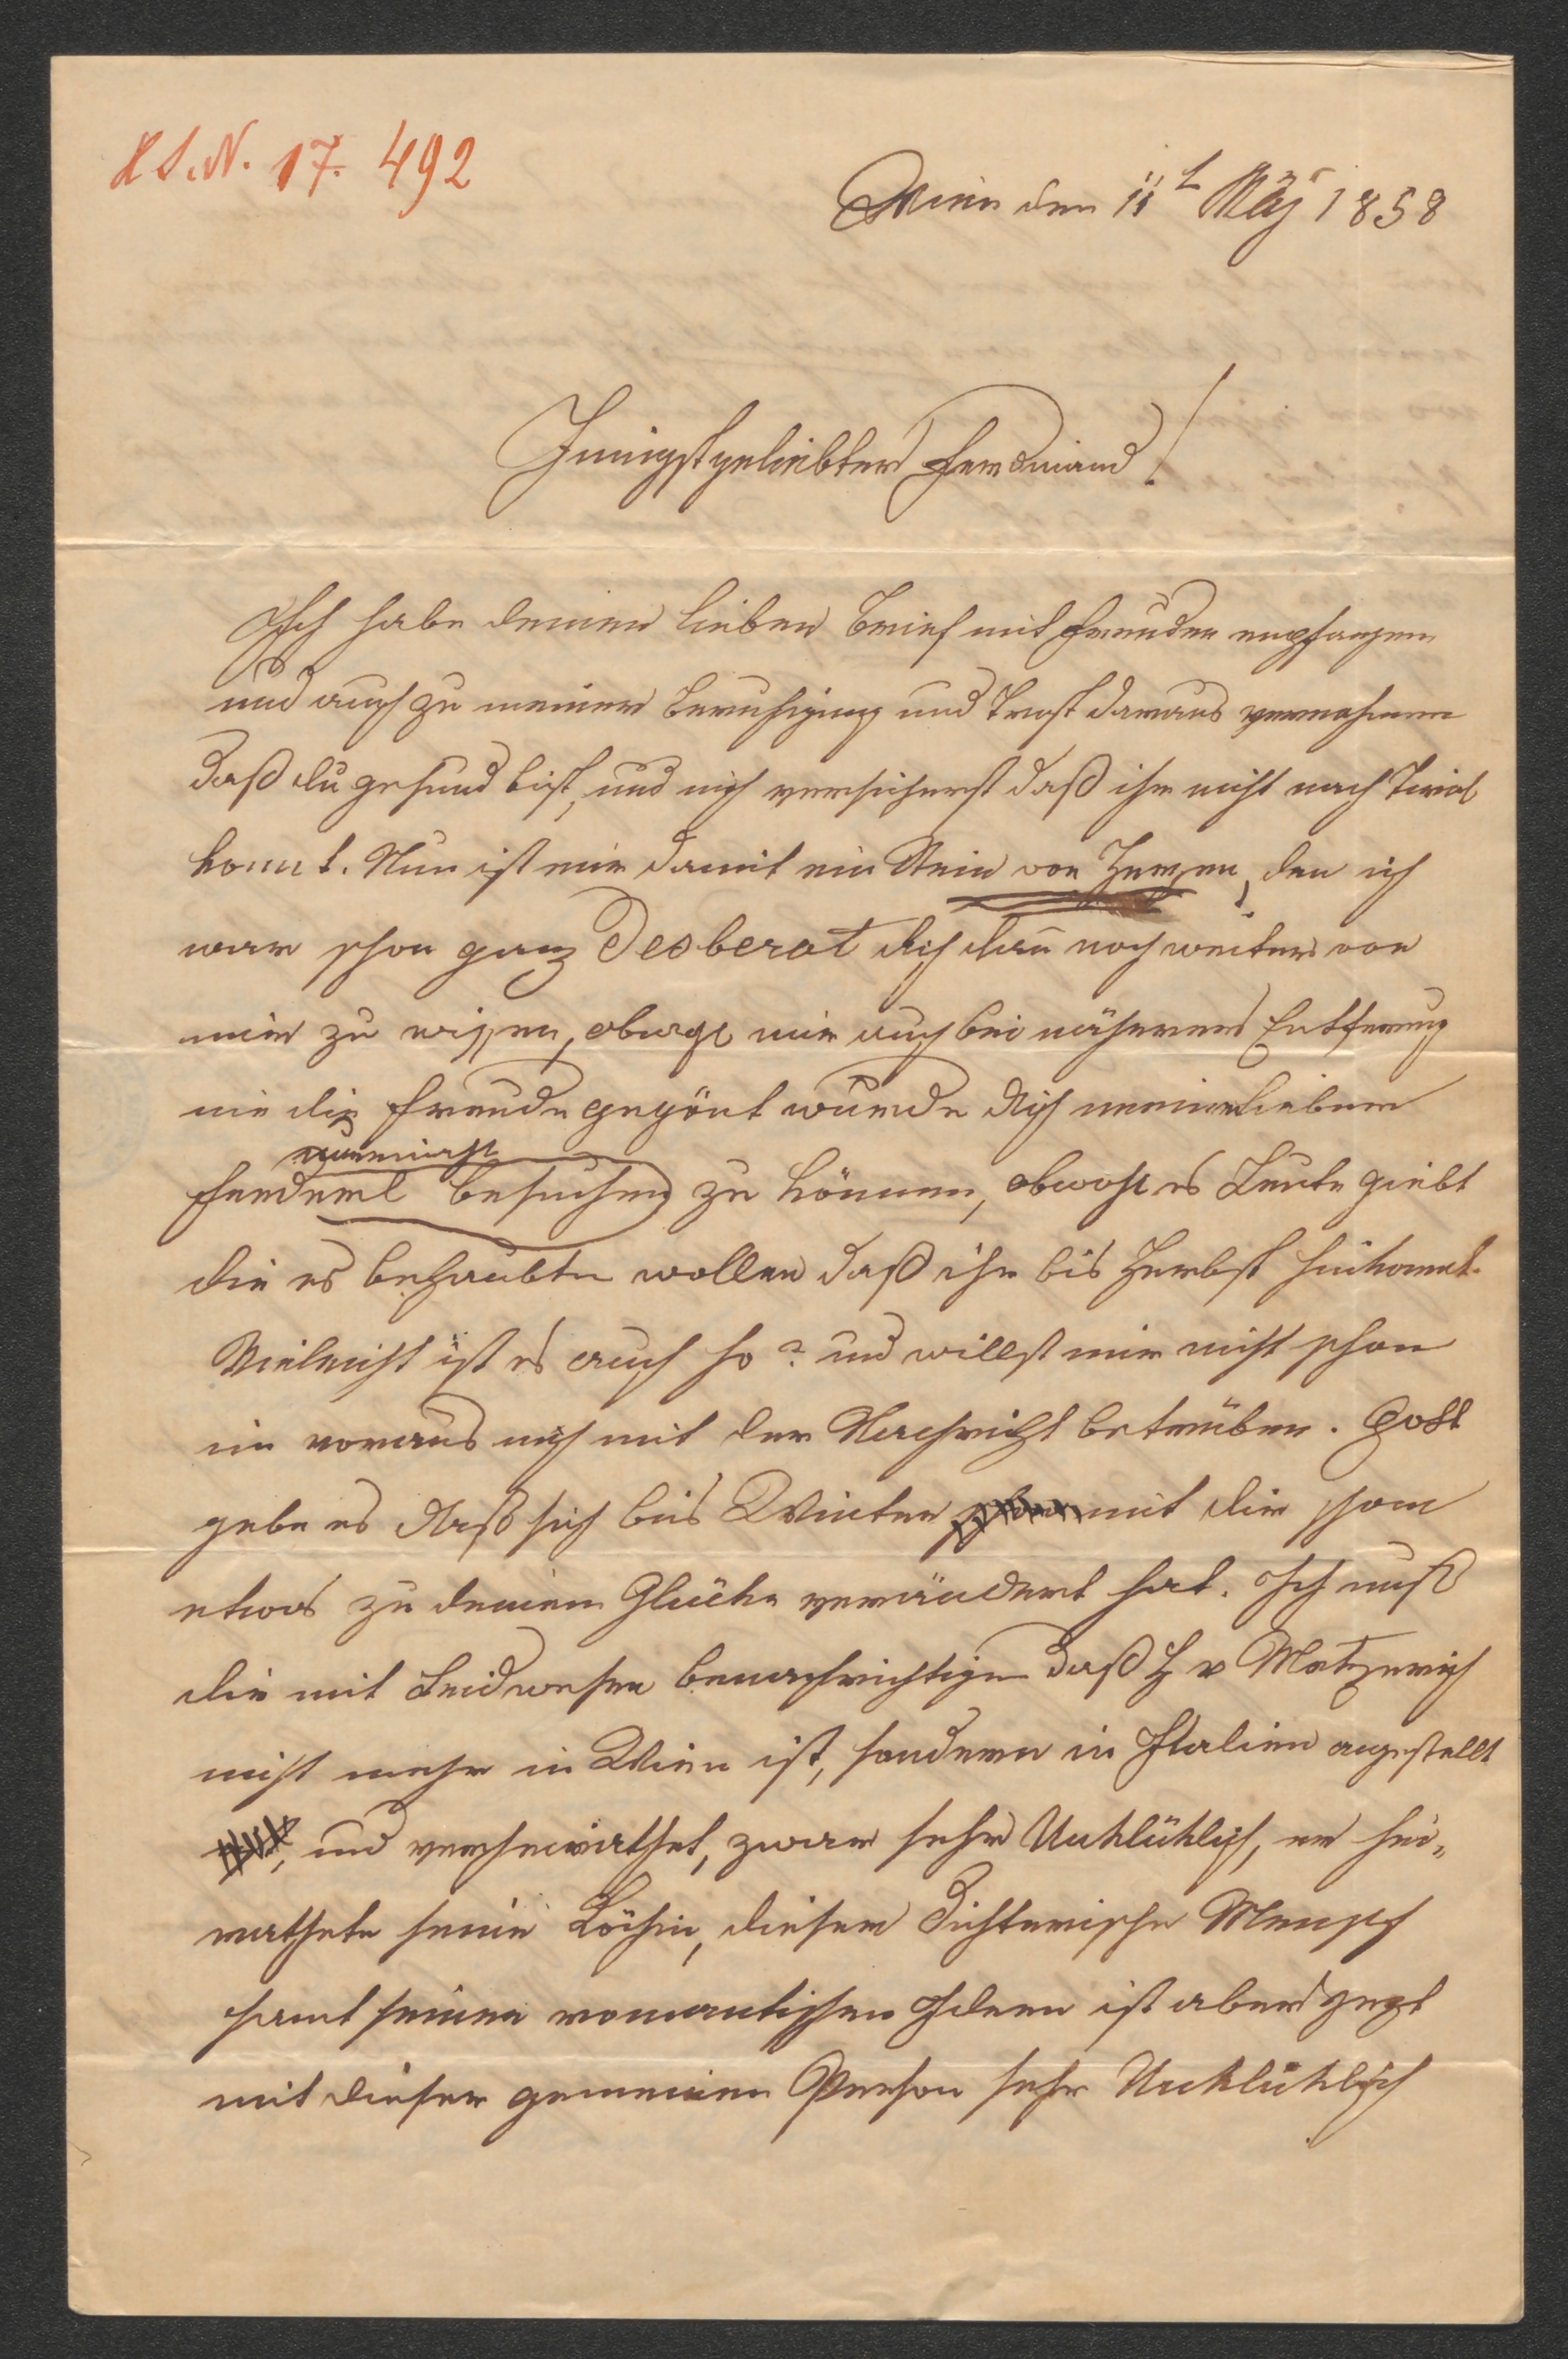 H.I.N. 17.492
Wien den 11t Mäj 1858
Innigstgeliebter Ferdinand!
Ich habe deinen lieben Brief mit Freuden empfangen
und auch zu meiner Beruhigung und Trost daraus vernohmen
daß du gesund bist, und mich versicherst daß ihr nicht nach Tirol
komt. Nun ist mir damit ein Stein von Herzen, den ich
war schon ganz Desberat dich dan̄ noch weiter von
mir zu wissen, obwohl mir auch bei näherer Entfernung
nie die Freude gegönt würde dich meine lieben
Ferderl besuchen zu können, obwohl es Leute giebt
die es behaubten wollen daß ihr bis Herbst hinkomt.
Vieleicht ist es auch so? und willst mir nicht schon
im voraus mich mit der Nachricht betrüben. Gott
gebe es daß sich bis Winter schon mit dir schon
etwas zu deinem Glücke verändert hat. Ich muß
dir mit Leidwesen benachrichtigen daß H v Metzerich
nicht mehr in Wien ist, sondern in Italien angestellt
, und verheirathet, zwar sehr Unklüklich, er hei„
rathete seine Köchin, dieser Dichterische Mensch
samt seinen romantischen Ideen ist aber jezt
mit dieser gemeinen Person sehr Unklüklich